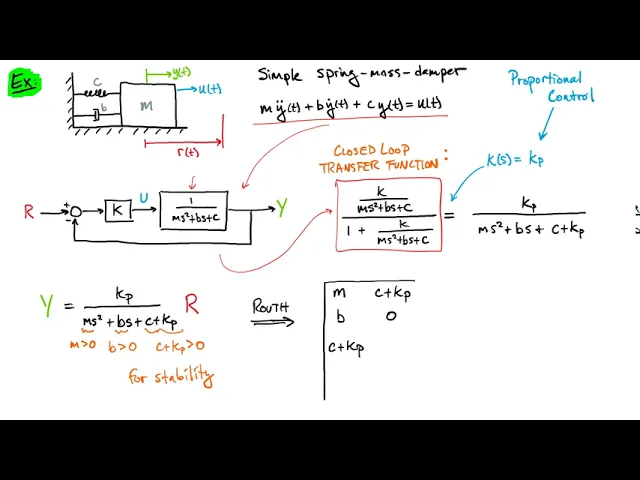 Ex:
c
b
m
y(t)
u(t)
r(t)
Simple Spring-mass-damper
mÿ(t) + bẏ(t) + c y(t) = u(t)
Proportional
Control
K(s) = Kp
CLOSED LOOP
TRANSFER FUNCTION:
R
+
-
K
U
1
ms²+bs+c
Y
K
ms²+bs+c
1 + K
ms²+bs+c
=
Kp
ms²+bs+ c+Kp
Y = Kp R
ms²+bs+c+Kp
m>0 b>0 c+Kp>0
for stability
ROUTH
m c+Kp
b 0
c+Kp